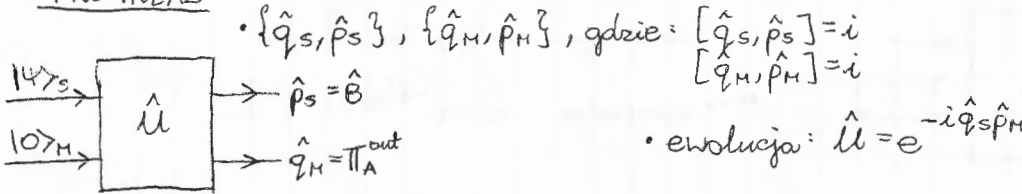 • {q̂_S, p̂_S}, {q̂_M, p̂_M}, gdzie: [q̂_S, p̂_S] = i
[q̂_M, p̂_M] = i
|ψ⟩_S
Û
p̂_S = B̂
|0⟩_M
q̂_M = Π_A^out
• ewolucja: Û = e^{-i q̂_S p̂_M}